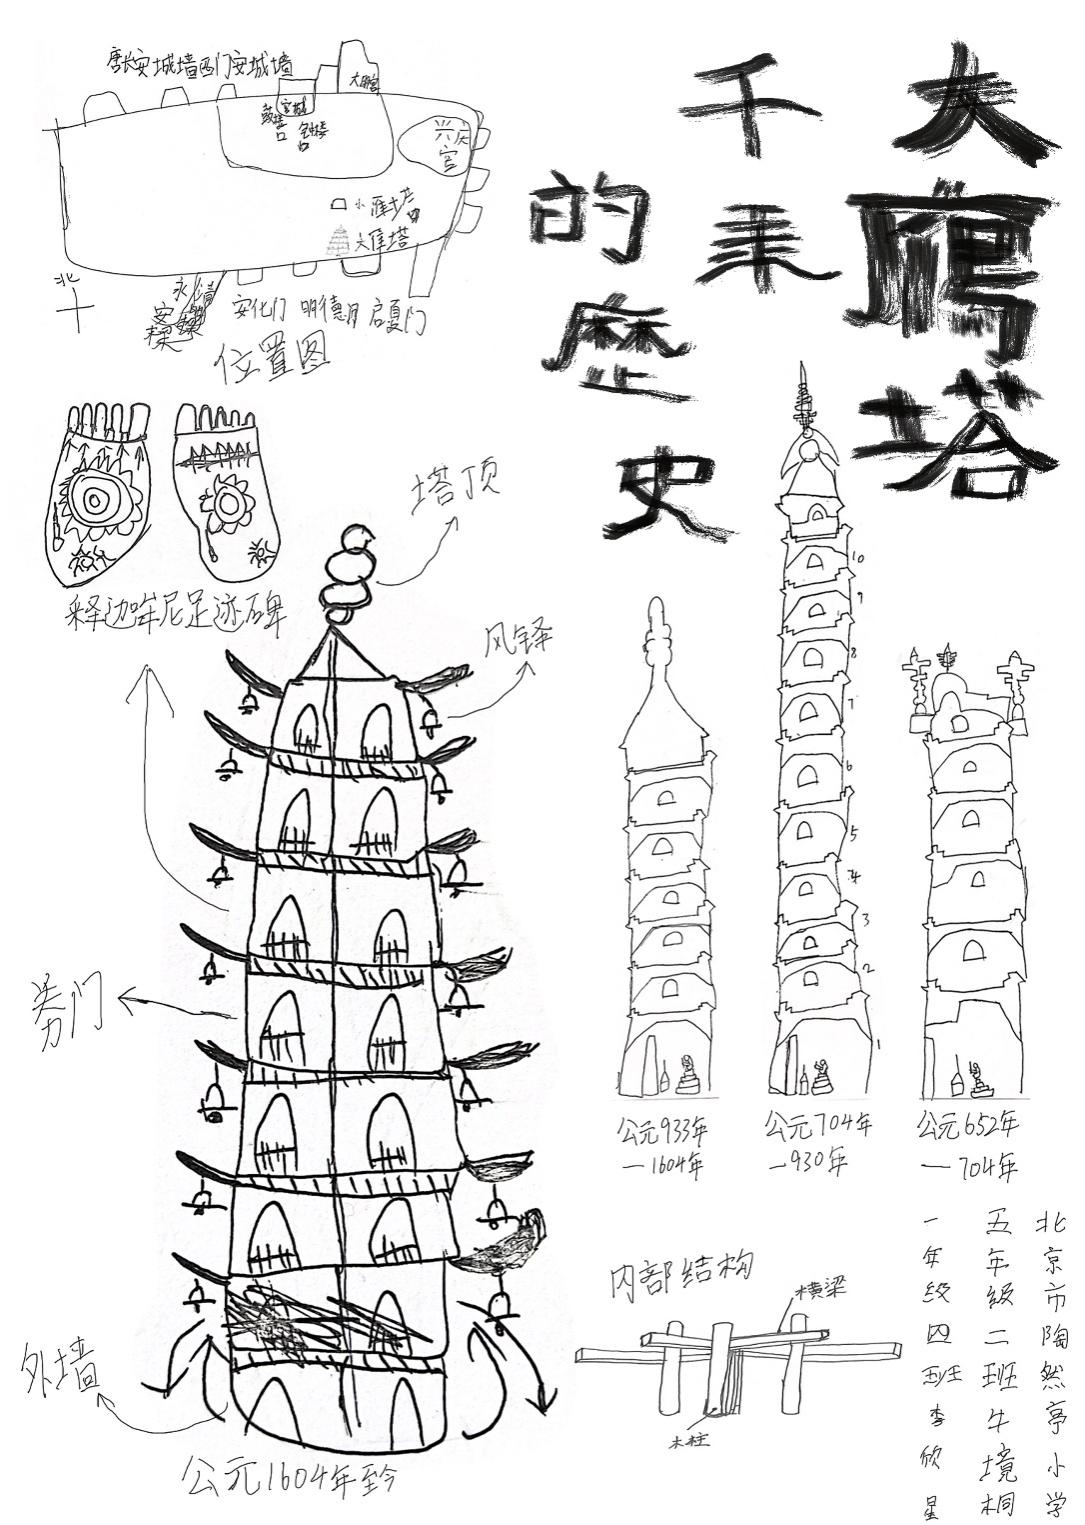 大雁塔
千年
的歷史
唐长安城墙西门安城墙
大明宫
宫城
鼓楼
钟楼
兴庆宫
小雁塔
大雁塔
北
安化门 明德门 启夏门
位置图
释迦牟尼足迹碑
塔顶
风铎
券门
外墙
公元1604年至今
10
9
8
7
6
5
4
3
2
1
公元933年
—1604年
公元704年
—930年
公元652年
—704年
内部结构
横梁
木柱
北京市陶然亭小学
五年级二班牛境桐
一年段四班李欣星